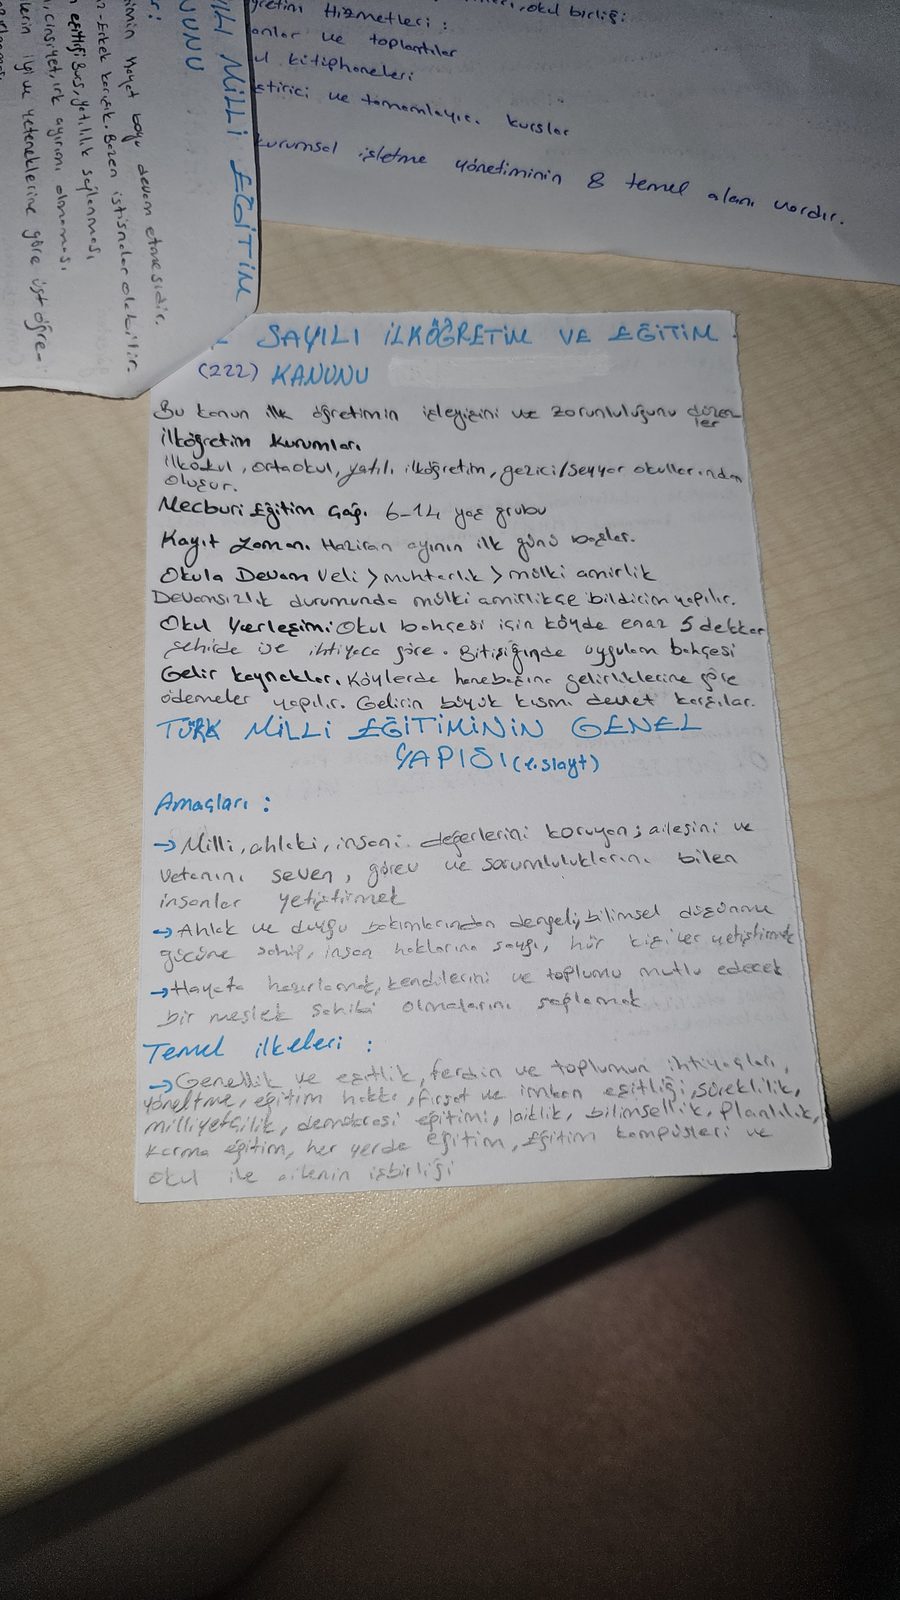 okul birliği:
Hizmetleri:
ve toplantılar
kitiphaneleri
ve tamamlayıcı kurslar
kurumsal işletme yönetiminin 8 temel alanı vardır.
MİLLİ EĞİTİM
hayat boyu devam etmesidir.
Erkek karışık. Bazen istisnalar olabilir.
eşitliği Burs, yatılılık sağlanması
cinsiyet, ırk ayırımı olmaması
ilgi ve yeteneklerine göre üst öğre-
SAYILI İLKÖĞRETİM VE EĞİTİM
(222) KANUNU
Bu kanun ilk öğretimin işleyişini ve zorunluluğunu düzen
ler
İlköğretim Kurumları
İlkokul, ortaokul, yatılı ilköğretim, gezici/seyyar okullarından
oluşur.
Mecburi Eğitim Çağı 6-14 yaş grubu
Kayıt Zamanı Haziran ayının ilk günü başlar.
Okula Devam Veli > muhtarlık > mülki amirlik
Devamsızlık durumunda mülki amirlikçe bildirim yapılır.
Okul Yerleşimi Okul bahçesi için köyde en az 5 dekar
şehirde ise ihtiyaca göre. Bitişiğinde uygulam bahçesi
Gelir kaynakları Köylerde hanebaşına gelirliklerine göre
ödemeler yapılır. Gelirin büyük kısmı devlet karşılar.
TÜRK MİLLİ EĞİTİMİNİN GENEL
YAPISI (1.slayt)
Amaçları:
→ Milli, ahlaki, insani değerlerini koruyan; ailesini ve
vatanını seven, görev ve sorumluluklarını bilen
insanlar yetiştirmek
→ Ahlak ve duygu bakımlarından dengeli, bilimsel düşünme
gücüne sahip, insan haklarına saygı, hür kişiler yetiştirmek
→ Hayata hazırlamak, kendilerini ve toplumu mutlu edecek
bir meslek sahibi olmalarını sağlamak
Temel ilkeleri:
→ Genellik ve eşitlik, ferdin ve toplumun ihtiyaçları,
yöneltme, eğitim hakkı, fırsat ve imkan eşitliği, süreklilik,
milliyetçilik, demokrasi eğitimi, laiklik, bilimsellik, planlılık,
karma eğitim, her yerde eğitim, Eğitim kampüsleri ve
okul ile ailenin işbirliği